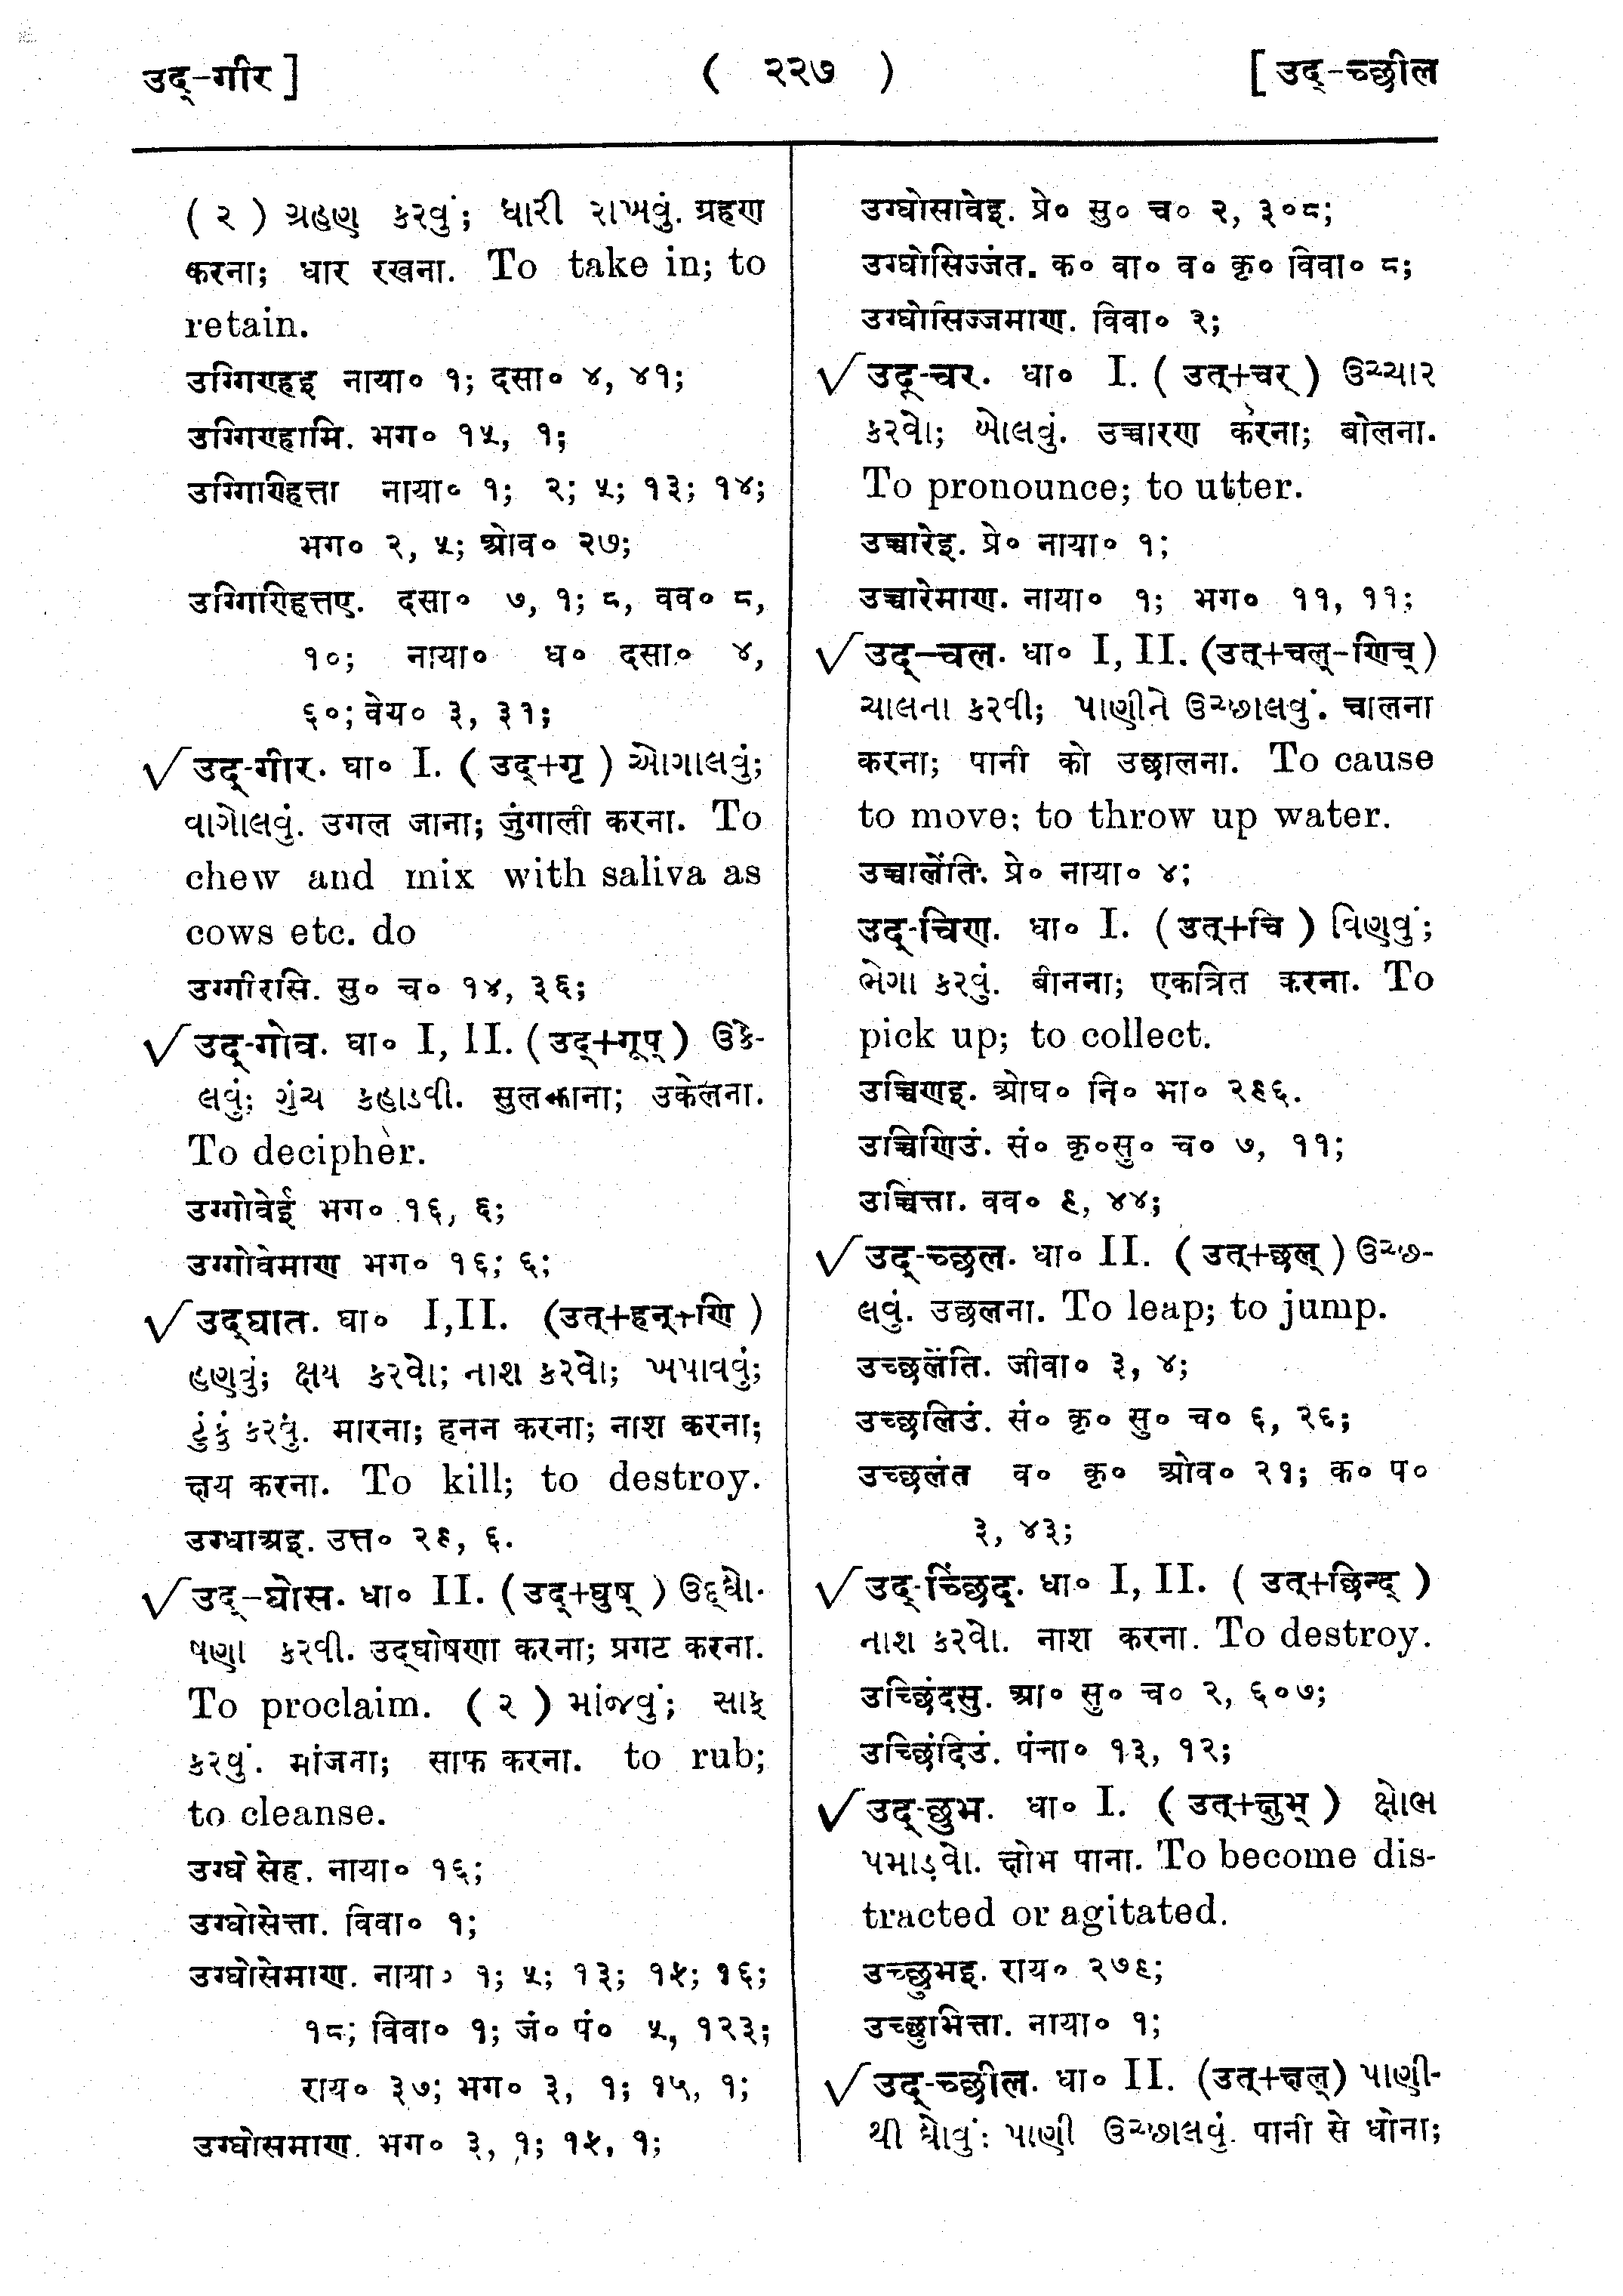 उद्-गीर ]
( २२७ )
[ उद्-च्छील
( २ ) ગ્રહણ કરવું; ધારી રાખવું. ग्रहण
करना; धार रखना. To take in; to
retain.
उग्गिण्हइ नाया० १; दसा० ४, ४१;
उग्गिण्हामि. भग० १५, १;
उग्गिण्हित्ता नाया० १; २; ५; १३; १४;
भग० २, ५; ओव० २७;
उग्गिण्हित्तए. दसा० ७, १; ८, वव० ८,
१०; नाया० ध० दसा० ४,
६०; वेय० ३, ३१;
√ उद्-गीर. धा० I. ( उद्+गृ ) ઓગાલવું;
વાગોલવું. उगल जाना; जुंगाली करना. To
chew and mix with saliva as
cows etc. do
उग्गीरसि. सु० च० १४, ३६;
√ उद्-गोव. धा० I, II. ( उद्+गूप् ) ઉકે-
લવું; ગુંચ કહાડવી. सुलझाना; उकेलना.
To decipher.
उग्गोवेई भग० १६, ६;
उग्गोवेमाण भग० १६; ६;
√ उद्घात. धा० I,II. (उत्+हन्+णि )
હણવું; ક્ષય કરવો; નાશ કરવો; ખપાવવું;
ટુંકું કરવું. मारना; हनन करना; नाश करना;
क्षय करना. To kill; to destroy.
उग्घाअइ. उत्त० २९, ६.
√ उद्-घोस. धा० II. ( उद्+घुष् ) ઉદ્ઘો-
ષણા કરવી. उद्घोषणा करना; प्रगट करना.
To proclaim. ( २ ) માંજવું; સાફ
કરવું. मांजना; साफ करना. to rub;
to cleanse.
उग्घे सेह. नाया० १६;
उग्घोसेत्ता. विवा० १;
उग्घोसेमाण. नाया० १; ५; १३; १५; १६;
१८; विवा० १; जं० पं० ५, १२३;
राय० ३७; भग० ३, १; १५, १;
उग्घोसमाण. भग० ३, १; १५, १;
उग्घोसावेइ. प्रे० सु० च० २, ३०८;
उग्घोसिज्जंत. क० वा० व० कृ० विवा० ८;
उग्घोसिज्जमाण. विवा० ३;
√ उद्-चर. धा० I. ( उत्+चर् ) ઉચ્ચાર
કરવો; બોલવું. उच्चारण करना; बोलना.
To pronounce; to utter.
उच्चारेइ. प्रे० नाया० १;
उच्चारेमाण. नाया० १; भग० ११, ११;
√ उद्-चल. धा० I, II. (उत्+चल्-णिच्)
ચાલના કરવી; પાણીને ઉચ્છાલવું. चालना
करना; पानी को उछालना. To cause
to move; to throw up water.
उच्चालेंति. प्रे० नाया० ४;
उद्-चिण. धा० I. ( उत्+चि ) વિણવું;
ભેગા કરવું. बीनना; एकत्रित करना. To
pick up; to collect.
उच्चिणइ. ओघ० नि० भा० २९६.
उच्चिणिउं. सं० कृ०सु० च० ७, ११;
उच्चित्ता. वव० ९, ४४;
√ उद्-च्छल. धा० II. ( उत्+छल् ) ઉચ્છ-
લવું. उछलना. To leap; to jump.
उच्छलेंति. जीवा० ३, ४;
उच्छलिउं. सं० कृ० सु० च० ६, २६;
उच्छलंत व० कृ० ओव० २१; क० प०
३, ४३;
√ उद्-च्छिंद. धा० I, II. ( उत्+छिन्द् )
નાશ કરવો. नाश करना. To destroy.
उच्छिंदसु. आ० सु० च० २, ६०७;
उच्छिंदिउं. पंना० १३, १२;
√ उद्-छुभ. धा० I. ( उत्+क्षुभ् ) ક્ષોભ
પમાડવો. क्षोभ पाना. To become dis-
tracted or agitated.
उच्छुभइ. राय० २७९;
उच्छुभित्ता. नाया० १;
√ उद्-च्छील. धा० II. (उत्+क्षल्) પાણી-
થી ધોવું; પાણી ઉચ્છાલવું. पानी से धोना;